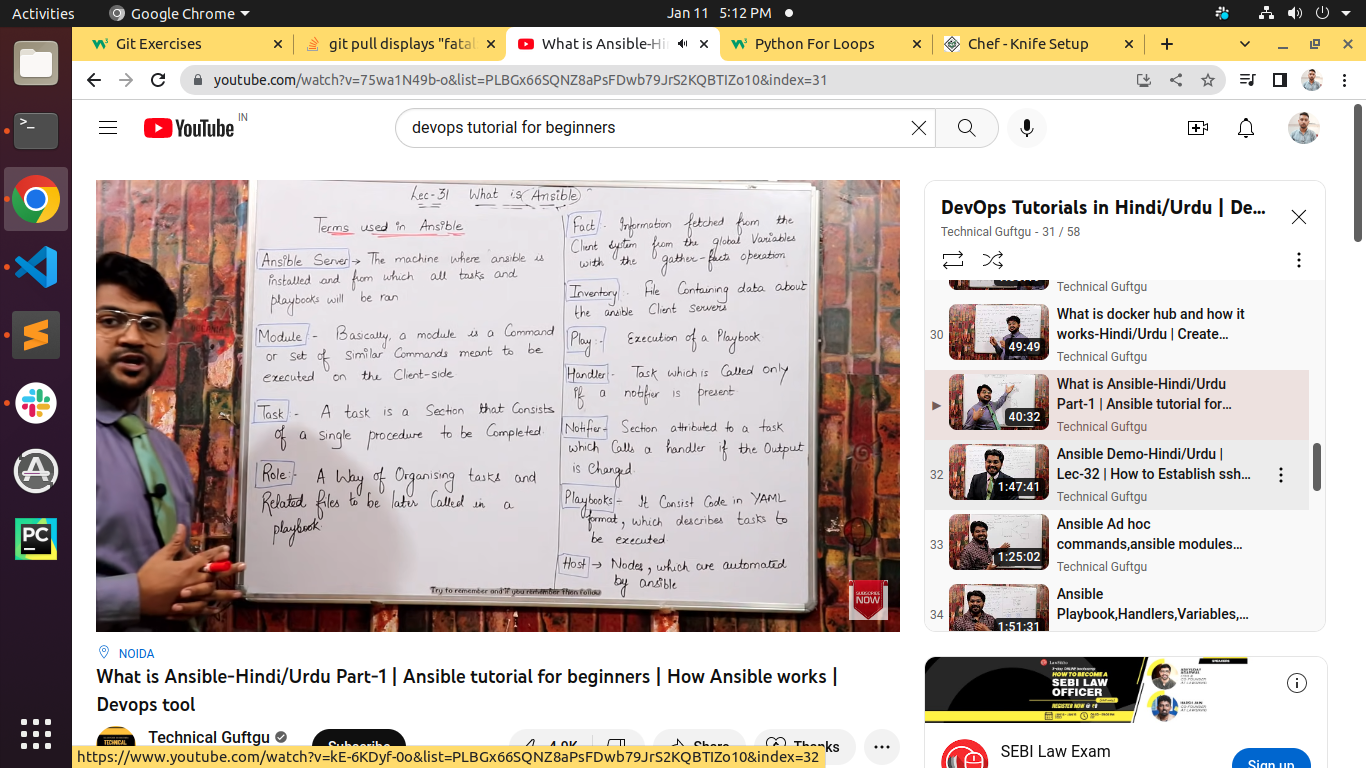 Activities
Google Chrome
Jan 11 5:12 PM
Git Exercises
git pull displays "fatal
What is Ansible-Hin
Python For Loops
Chef - Knife Setup
youtube.com/watch?v=75wa1N49b-o&list=PLBGx66SQNZ8aPsFDwb79JrS2KQBTIZo10&index=31
YouTube IN
devops tutorial for beginners
Lec-31 What is Ansible
Terms used in Ansible
Ansible Server → The machine where ansible is
installed and from which all tasks and
playbooks will be ran
Module - Basically, a module is a Command
or set of similar Commands meant to be
executed on the Client-side
Task :- A task is a Section that Consists
of a single procedure to be Completed.
Role:- A Way of Organising tasks and
Related files to be later Called in a
playbook
Fact: Information fetched from the
Client system from the global Variables
with the gather-facts operation
Inventory - File Containing data about
the ansible Client Servers
Play:- Execution of a Playbook
Handler - Task which is Called only
if a notifier is present
Notifer- Section attributed to a task
which Calls a handler if the Output
is Changed.
Playbooks - It Consist Code in YAML
format, which describes tasks to
be executed
Host → Nodes, which are automated
by ansible
Try to remember and if you remember then follow
SUBSCRIBE
NOW
NOIDA
What is Ansible-Hindi/Urdu Part-1 | Ansible tutorial for beginners | How Ansible works |
Devops tool
TECHNICAL
Technical Guftgu
Subscribe
4.9K
Share
Thanks
https://www.youtube.com/watch?v=kE-6KDyf-0o&list=PLBGx66SQNZ8aPsFDwb79JrS2KQBTIZo10&index=32
DevOps Tutorials in Hindi/Urdu | De...
Technical Guftgu - 31 / 58
Technical Guftgu
30
49:49
What is docker hub and how it
works-Hindi/Urdu | Create...
Technical Guftgu
40:32
What is Ansible-Hindi/Urdu
Part-1 | Ansible tutorial for...
Technical Guftgu
32
1:47:41
Ansible Demo-Hindi/Urdu |
Lec-32 | How to Establish ssh...
Technical Guftgu
33
1:25:02
Ansible Ad hoc
commands,ansible modules...
Technical Guftgu
34
1:51:31
Ansible
Playbook,Handlers,Variables,...
HOW TO BECOME A
SEBI LAW
OFFICER
REGISTER NOW @
SPEAKERS
SEBI Law Exam
Sign up
PC